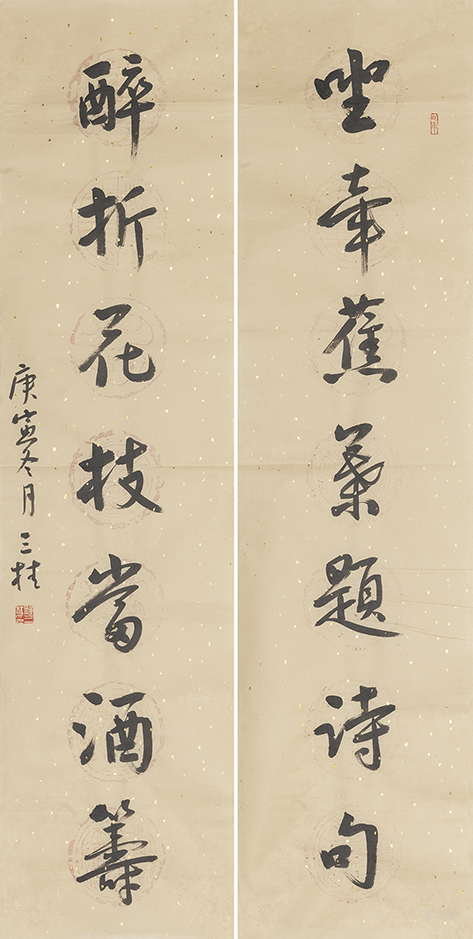 坐牵蕉葉題诗句
醉折花枝當酒籌
庚寅冬月 三桂